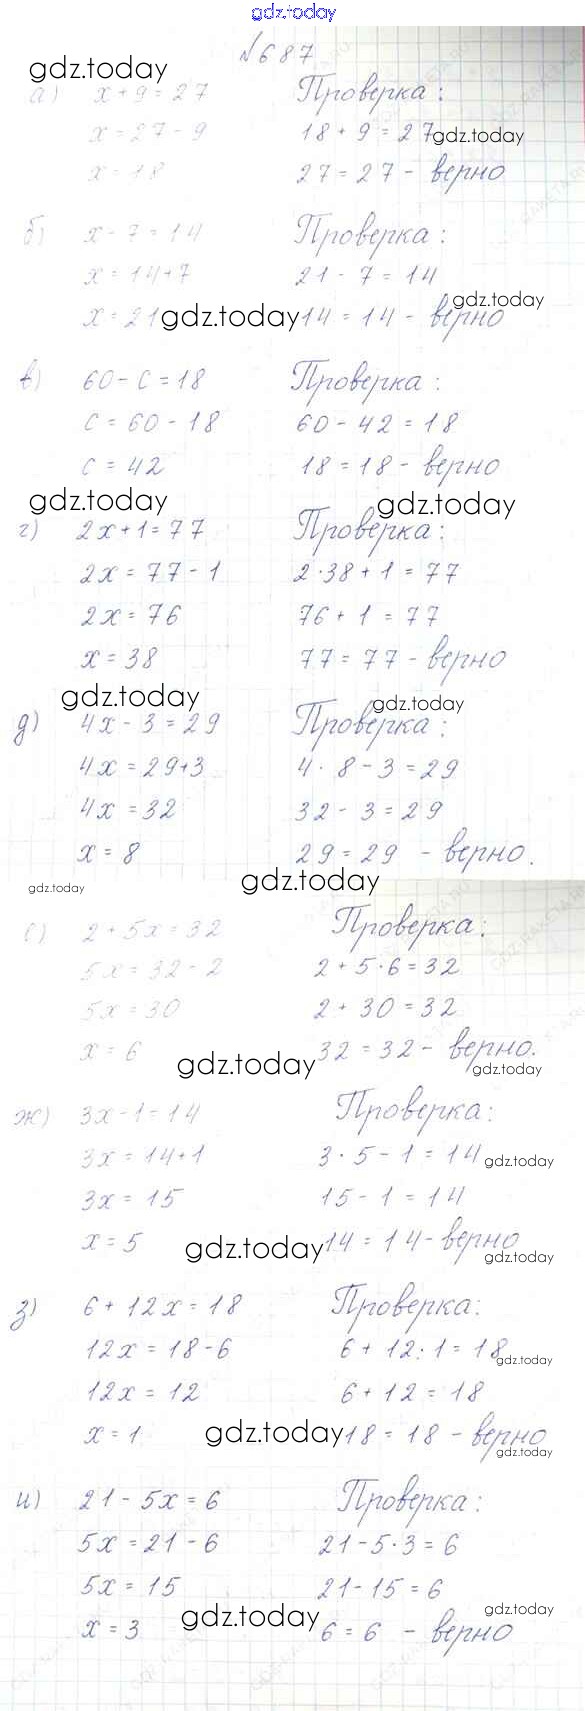 gdz.today
№687
gdz.today
а) x + 9 = 27 Проверка:
x = 27 - 9 18 + 9 = 27 gdz.today
x = 18 27 = 27 - верно
б) x - 7 = 14 Проверка:
x = 14+7 21 - 7 = 14
gdz.today
x = 21 gdz.today 14 = 14 - верно
в) 60 - c = 18 Проверка:
c = 60 - 18 60 - 42 = 18
c = 42 18 = 18 - верно
gdz.today gdz.today
г) 2x + 1 = 77 Проверка:
2x = 77 - 1 2·38 + 1 = 77
2x = 76 76 + 1 = 77
x = 38 77 = 77 - верно
gdz.today gdz.today
д) 4x - 3 = 29 Проверка:
4x = 29+3 4 · 8 - 3 = 29
4x = 32 32 - 3 = 29
x = 8 29 = 29 - верно.
gdz.today gdz.today
е) 2 + 5x = 32 Проверка:
5x = 32 - 2 2 + 5·6 = 32
5x = 30 2 + 30 = 32
x = 6 32 = 32 - верно.
gdz.today gdz.today
ж) 3x - 1 = 14 Проверка:
3x = 14+1 3 · 5 - 1 = 14 gdz.today
3x = 15 15 - 1 = 14
x = 5 gdz.today 14 = 14 - верно
gdz.today
з) 6 + 12x = 18 Проверка:
12x = 18 - 6 6 + 12·1 = 18 gdz.today
12x = 12 6 + 12 = 18
x = 1 gdz.today 18 = 18 - верно
gdz.today
и) 21 - 5x = 6 Проверка:
5x = 21 - 6 21 - 5·3 = 6
5x = 15 21 - 15 = 6
gdz.today gdz.today
x = 3 6 = 6 - верно